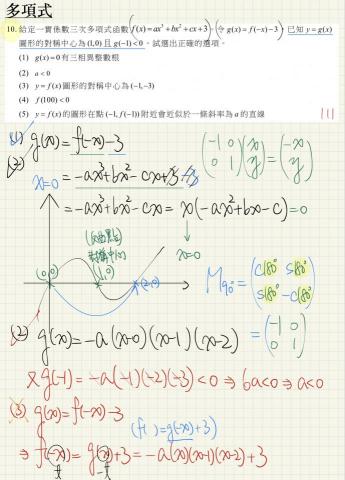 多項式
10. 給定一實係數三次多項式函數 f(x)=ax³+bx²+cx+3,令 g(x)=f(-x)-3,已知 y=g(x)
圖形的對稱中心為 (1,0) 且 g(-1)<0。試選出正確的選項。
(1) g(x)=0 有三相異整數根
(2) a<0
(3) y=f(x) 圖形的對稱中心為 (-1,-3)
(4) f(100)<0
(5) y=f(x) 的圖形在點 (-1, f(-1)) 附近會近似於一條斜率為 a 的直線
(1) g(x)=f(-x)-3
(2) x=0 = -ax³+bx²-cx+3-3
= -ax³+bx²-cx = x(-ax²+bx-c)=0
x=0
(-1 0
0 1)(x
y)=(-x
y)
(0,0) (1,0) (2,0)
M90°=(c180° s180°
s180° -c180°)
=(-1 0
0 1)
(2) g(x)=-a(x-0)(x-1)(x-2)
x g(-1)=-a(-1)(-2)(-3)<0⇒6a<0⇒a<0
(3) g(x)=f(-x)-3
(f( )=g(-x)+3)
⇒ f(-x)=g(x)+3=-a(x)(x-1)(x-2)+3
t -t